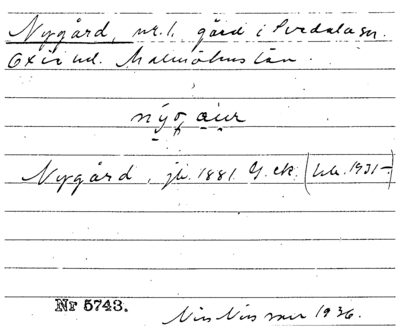 Nygård, nr. 1, gård i Svedala sn.
Oxie hd. Malmöhus län.
nýgaur
Nygård, jb. 1881. G. ek. (
Nr 5743.
Nils Nilsson 1936.